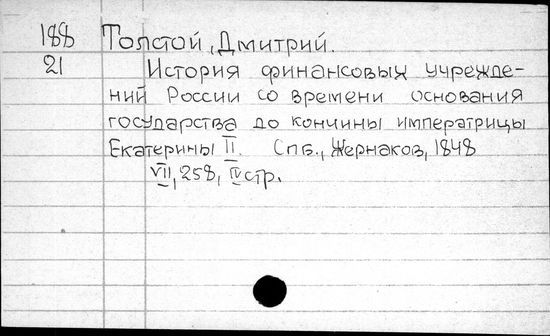 188 Толстой, Дмитрий.
21 История финансовых учрежде-
ний России со времени основания
государства до кончины императрицы
Екатерины II. Спб., Жернаков, 1848
VII, 258, IV стр.